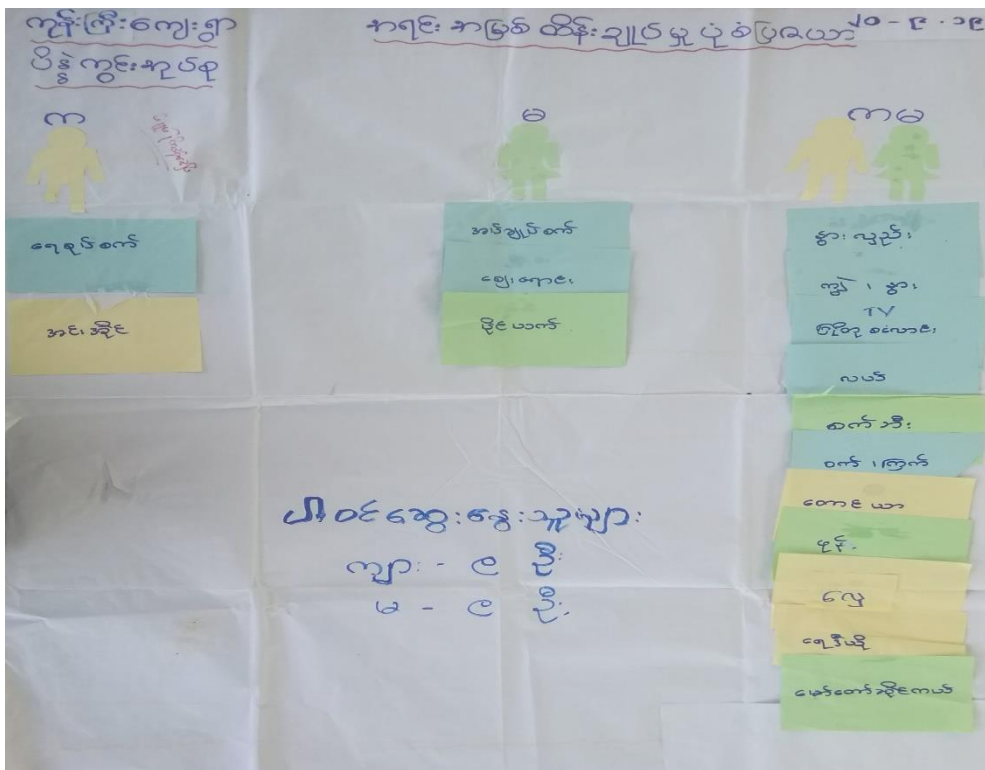 ကုန်းကြီးကျေးရွာ
ပိန္နဲကွင်းအုပ်စု
အရင်းအမြစ် ထိန်းချုပ်မှု ပုံစံပြဇယား
၁၀-၉-၁၉
က
မ
ကမ
ရေစုပ်စက်
အင်းအိုင်
အပ်ချုပ်စက်
ဈေးရောင်း
ဖိုင်ယက်
နွားလှည်း
ကျွဲ၊ နွား
TV
ဂြိုဟ်တုစလောင်း
လယ်
စက်ဘီး
ဝက်၊ကြက်
တောင်ယာ
ဖုန်း
လှေ
ရေဒီယို
မော်တော်ဆိုင်ကယ်
ပါဝင်ဆွေးနွေးသူများ
ကျား - ၉ ဦး
မ - ၉ ဦး